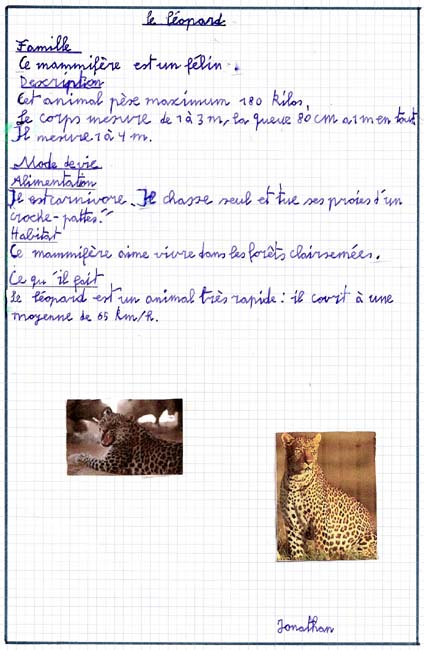 le léopard
Famille
Ce mammifère est un félin.
Description
Cet animal pèse maximum 180 kilos,
Le corps mesure de 1 à 3 m, la queue 80 cm a 1 m en tout
Il mesure 1 à 4 m.
Mode de vie
Alimentation
Il est carnivore. Il chasse seul et tue ses proies d'un
croche-pattes.
Habitat
Ce mammifère aime vivre dans les forêts clairsemées.
Ce qu'il fait
Le léopard est un animal très rapide : il court à une
moyenne de 65 km/h.
Jonathan